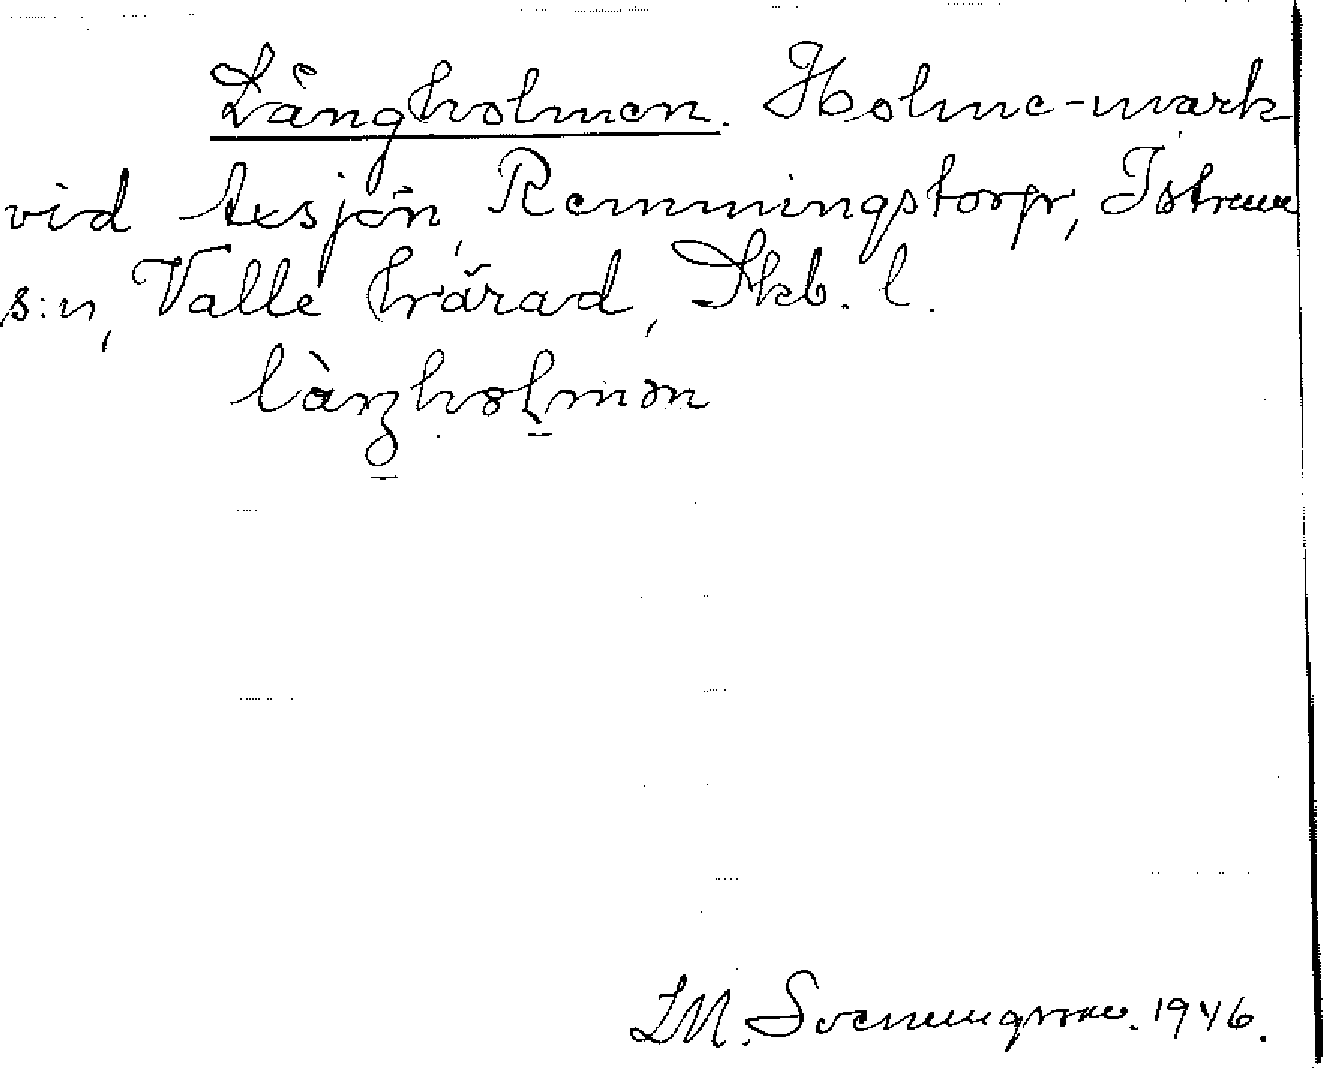 Långholmen. Holme-mark
vid Axsjön, Remmingstorp, Istrum
s:n, Valle härad, Skb. l.
làŋhol̠mən
Sveningsson. 1946.